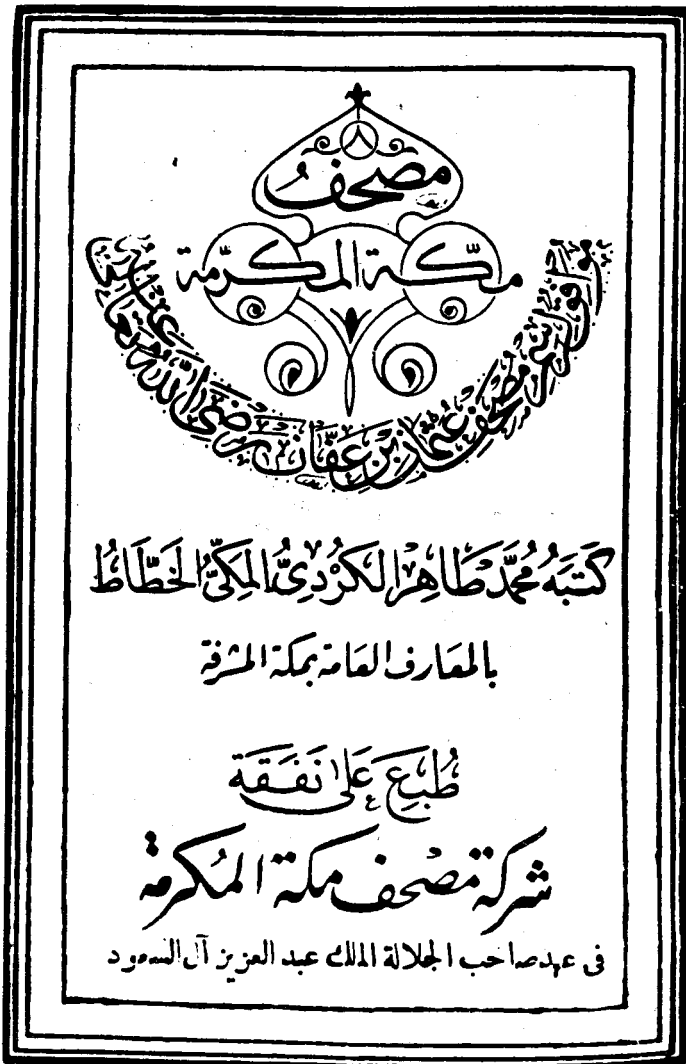 مصحف
مكّة المكرّمة
موافق لرسم مصحف عثمان بن عفّان رضى الله تعالى عنه
كَتَبَهُ مُحَمَّد طَاهِر الكُرْدِىُّ المَكِّىُّ الخَطَّاطُ
بالمعَارف العَامة بمكة المشرفة
طُبِعَ عَلى نَفَقَة
شركة مصحف مكة المُكرمة
فى عهد صاحب الجلالة الملك عبد العزيز آل السعود